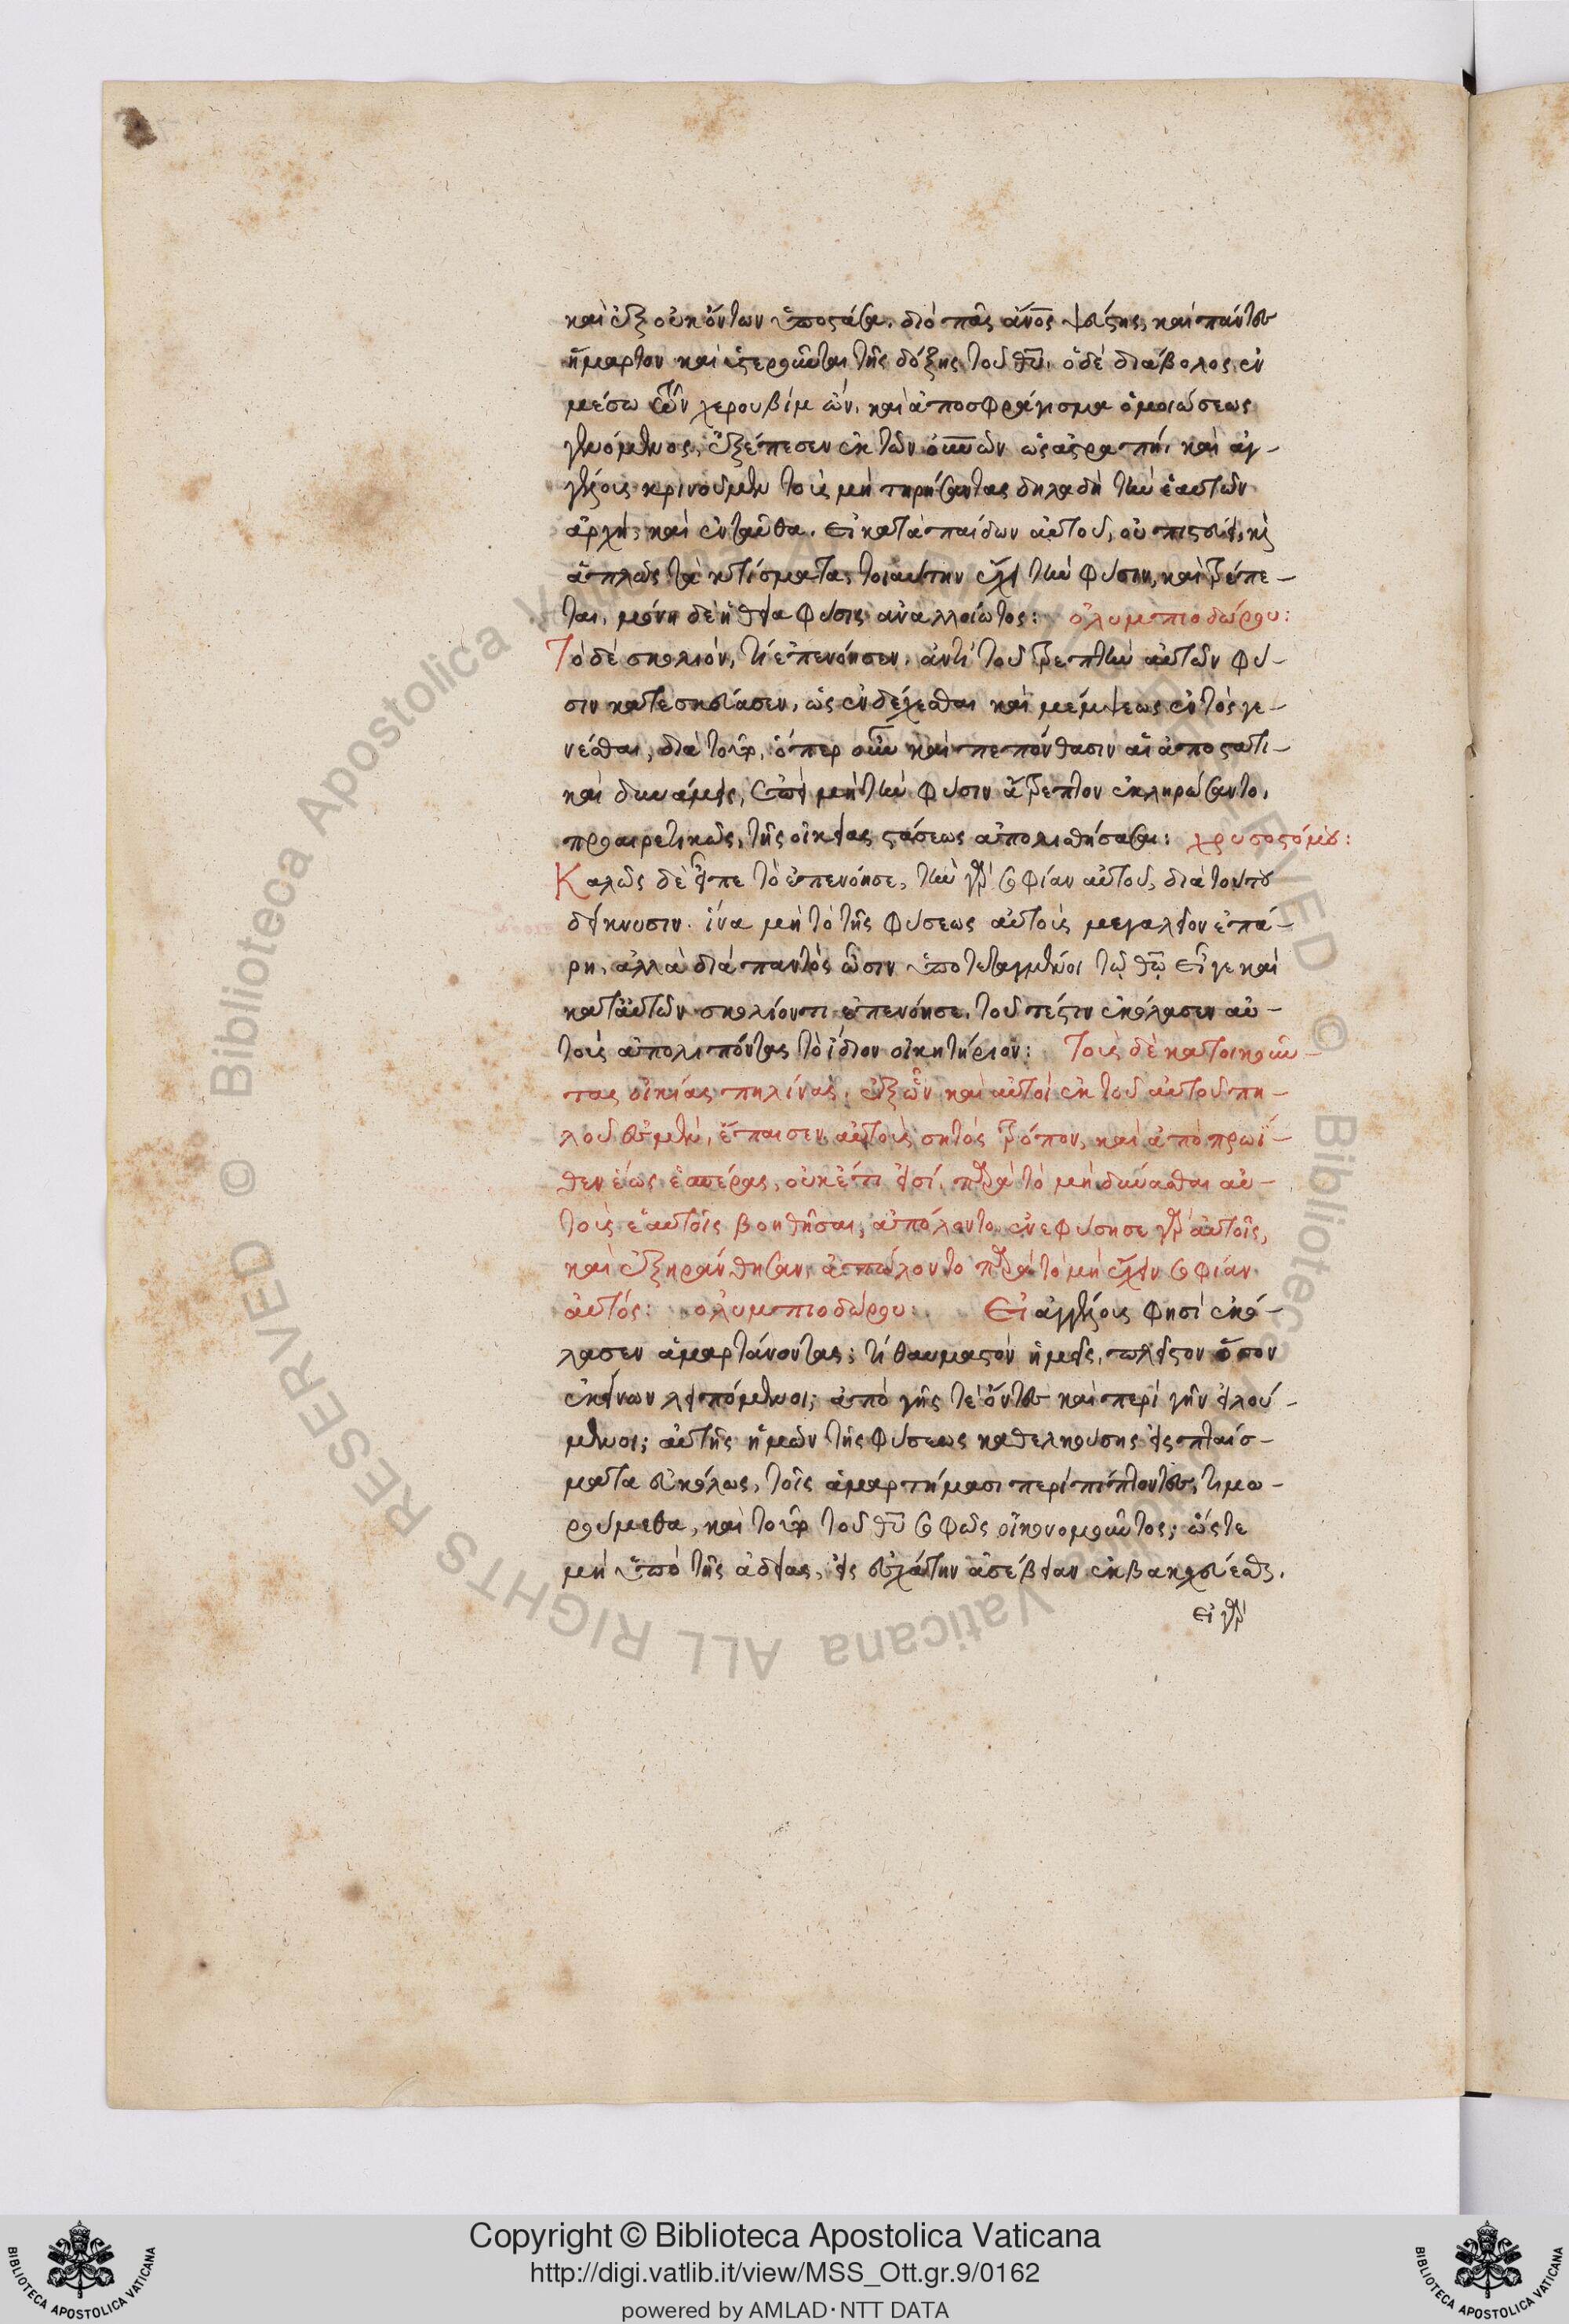 καὶ ἐξ οὐκ ὄντων ὑποστᾶσα. διὸ πᾶς ἄνος ψεύστης, καὶ πάντες
ἥμαρτον καὶ ὑστεροῦνται τῆς δόξης τοῦ θυ. ὁ δὲ διάβολος ἐν
μέσω τῶν χερουβὶμ ὤν, καὶ ἀποσφράγισμα ὁμοιώσεως
γενόμενος, ἐξέπεσεν ἐκ τῶν οὐνῶν ὡς ἀστραπή, καὶ ἀγ-
γέλους κρινοῦμεν τοὺς μὴ τηρήσαντας δηλαδὴ τὴν ἑαυτῶν
ἀρχήν, καὶ ἐνταῦθα. εἰ κατὰ παίδων αὐτοῦ, οὐ πιστεύει, κὶ
ἁπλῶς τὰ κτίσματα, τοιαύτην ἔχει τὴν φύσιν, καὶ τρέπε-
ται, μόνη δὲ ἡ θεία φύσις ἀναλλοίωτος: ὀλυμπιοδώρου:
Τὸ δὲ σκολιόν, τί ἐπενόησεν. ἀντὶ τοῦ τρεπτὴν αὐτῶν φύ-
σιν κατεσκεύασεν, ὡς ἐνδέχεσθαι καὶ μέμψεως ἐντὸς γε-
νέσθαι, διὰ τοῦτο, ὅπερ οὖν καὶ πεπόνθασιν αἱ ἀποστατι-
καὶ δυνάμεις, ἐπεὶ μὴ τὴν φύσιν ἄτρεπτον ἐκληρώσαντο,
προαιρετικῶς, τῆς οἰκείας στάσεως ἀπολισθήσασαι: χρυσοστόμου:
Καλῶς δὲ εἶπε τὸ ἐπενόησε, τὴν γὰρ σοφίαν αὐτοῦ, διὰ τούτου
δείκνυσιν. ἵνα μὴ τὸ τῆς φύσεως αὐτοὺς μεγαλεῖον ἐπά-
ρη, ἀλλὰ διὰ παντὸς ὦσιν ὑποτεταγμένοι τῷ θῷ εἴ γε καὶ
κατ αὐτῶν σκολιόν τι ἐπενόησε. τουτέστιν ἐκόλασεν αὐ-
τοὺς ἀπολιπόντας τὸ ἴδιον οἰκητήριον: Τοὺς δὲ κατοικοῦν-
τας οἰκίας πηλίνας, ἐξ ὧν καὶ αὐτοὶ ἐκ τοῦ αὐτοῦ πη-
λοῦ ἐσμέν, ἔπαισεν αὐτοὺς σητὸς τρόπον, καὶ ἀπὸ πρωΐ-
θεν ἕως ἑσπέρας, οὐκέτι εἰσί, παρὰ τὸ μὴ δύνασθαι αὐ-
τοὺς ἑαυτοῖς βοηθῆσαι, ἀπώλοντο, ἐνεφύσησε γὰρ αὐτοῖς,
καὶ ἐξηράνθησαν, ἀπώλοντο παρὰ τὸ μὴ ἔχειν σοφίαν
αὐτός: ὀλυμπιοδώρου: Εἰ ἀγγέλους φησὶ ἐκό-
λασεν ἁμαρτάνοντας; τί θαυμαστὸν ἡμεῖς, πλεῖστον ὅσον
ἐκείνων λειπόμενοι; ἀπὸ γῆς τε ὄντες καὶ περὶ γῆν εἰλού-
μενοι; αὐτῆς ἡμῶν τῆς φύσεως καθελκούσης εἰς πταίσ-
ματα εὐκόλως, τοῖς ἁμαρτήμασι περιπίπτοντες, τιμω-
ρούμεθα, καὶ τοῦτο τοῦ θυ σοφῶς οἰκονομοῦντος; ὥστε
μὴ ὑπὸ τῆς ἀδείας, εἰς ἐσχάτην ἀσέβειαν ἐκβακχεύεσθαι.
εἰ γὰρ
Copyright © Biblioteca Apostolica Vaticana
http://digi.vatlib.it/view/MSS_Ott.gr.9/0162
powered by AMLAD·NTT DATA